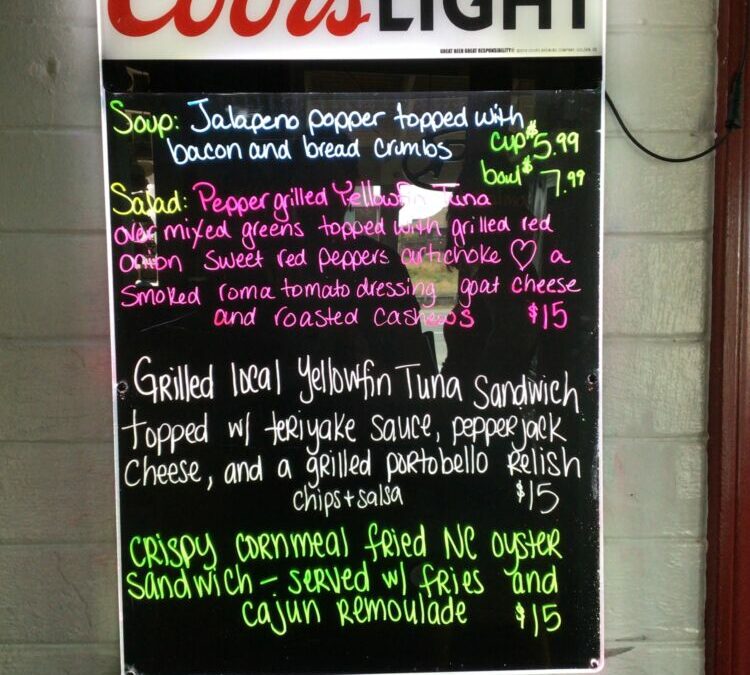 Coors LIGHT
GREAT BEER GREAT RESPONSIBILITY®
Soup: Jalapeno popper topped with
bacon and bread crumbs
cup $5.99
bowl $7.99
Salad: Pepper grilled Yellowfin Tuna
over mixed greens topped with grilled red
onion sweet red peppers artichoke ♡ a
smoked roma tomato dressing goat cheese
and roasted cashews $15
Grilled local Yellowfin Tuna Sandwich
topped w/ teriyake sauce, pepperjack
cheese, and a grilled portobello Relish
chips + salsa $15
crispy cornmeal fried NC oyster
sandwich - served w/ fries and
cajun Remoulade $15